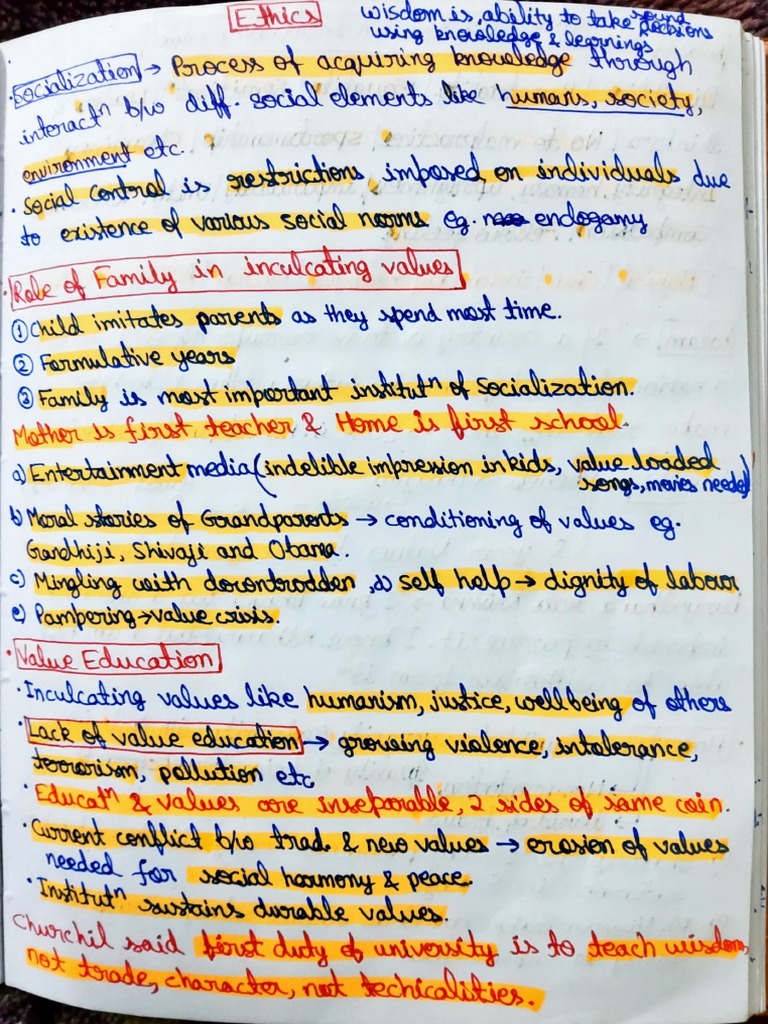 Ethics
wisdom is ability to take sound decisions
using knowledge & learnings
· Socialization → Process of acquiring knowledge through
interactⁿ b/w diff. social elements like humans, society,
environment etc.
· Social control is restrictions imposed on individuals due
to existence of various social norms eg. endogamy
· Role of Family in inculcating values
① Child imitates parents as they spend most time.
② Formulative years
③ Family is most important institutⁿ of socialization.
Mother is first teacher & Home is first school.
a) Entertainment media (indelible impression in kids, value loaded
songs, movies needed)
b) Moral stories of Grandparents → conditioning of values eg.
Gandhiji, Shivaji and Obama.
c) Mingling with downtrodden, d) self help → dignity of labour
e) Pampering → value crisis.
· Value Education
· Inculcating values like humanism, justice, wellbeing of others
· Lack of value education → growing violence, intolerance,
terrorism, pollution etc
· Educatⁿ & values are inseparable, 2 sides of same coin.
· Current conflict b/w trad. & new values → erosion of values
needed for social harmony & peace.
· Institutⁿ sustains durable values.
Churchil said first duty of university is to teach wisdom,
not trade, character, not techicalities.